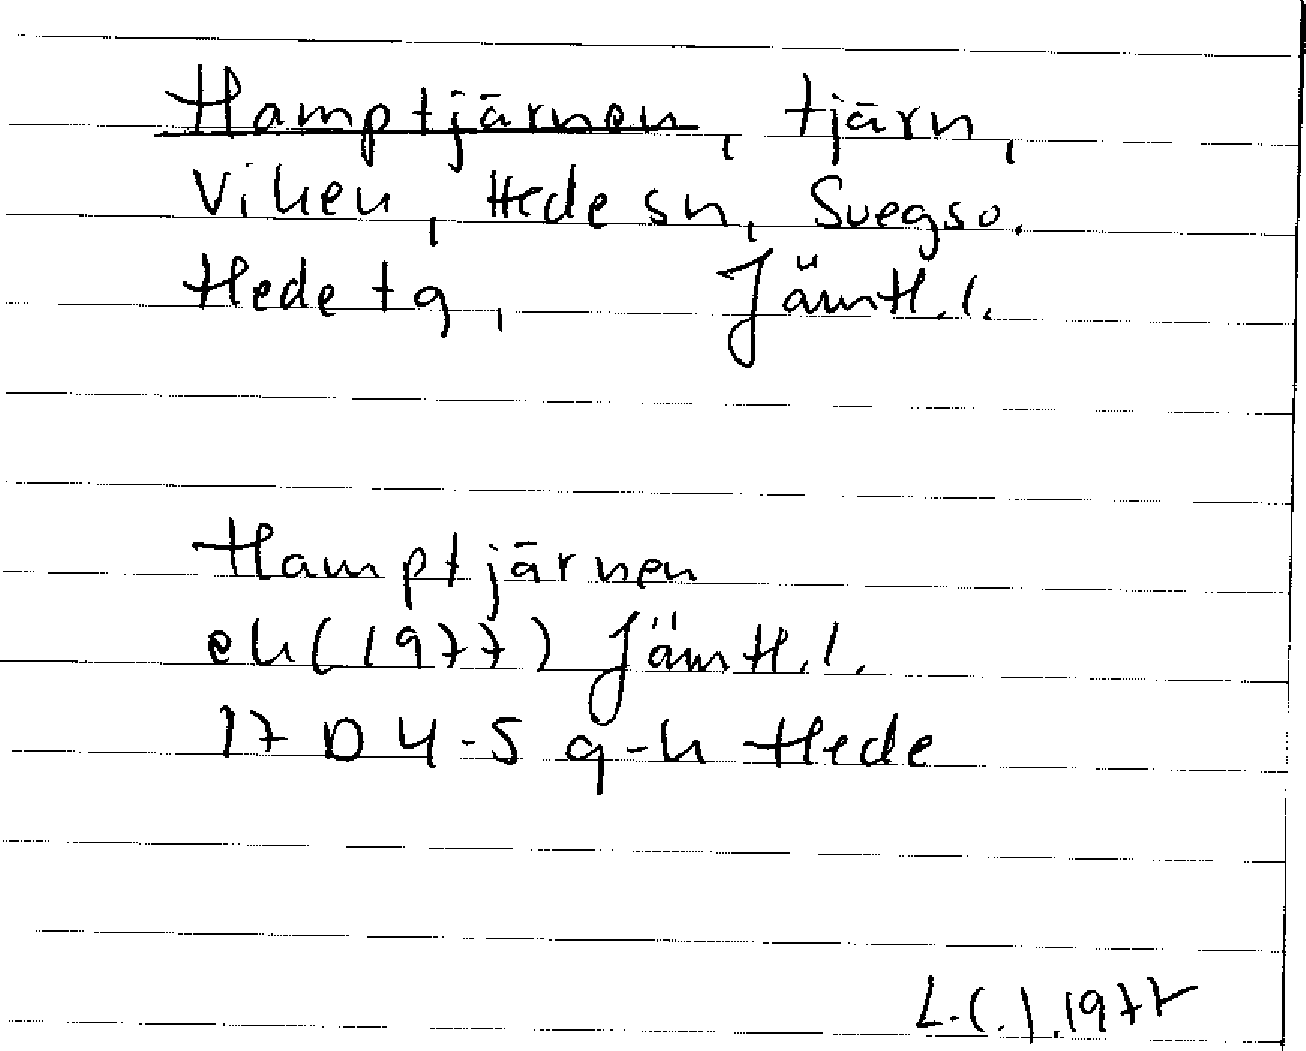 Hamptjärnen, tjärn,
Viken, Hede sn, Svegs o.
Hede tg, Jämtl. l.
Hamptjärnen
ek (1977) Jämtl. l.
17 D 4-5 g-h Hede
L.C.J. 1977